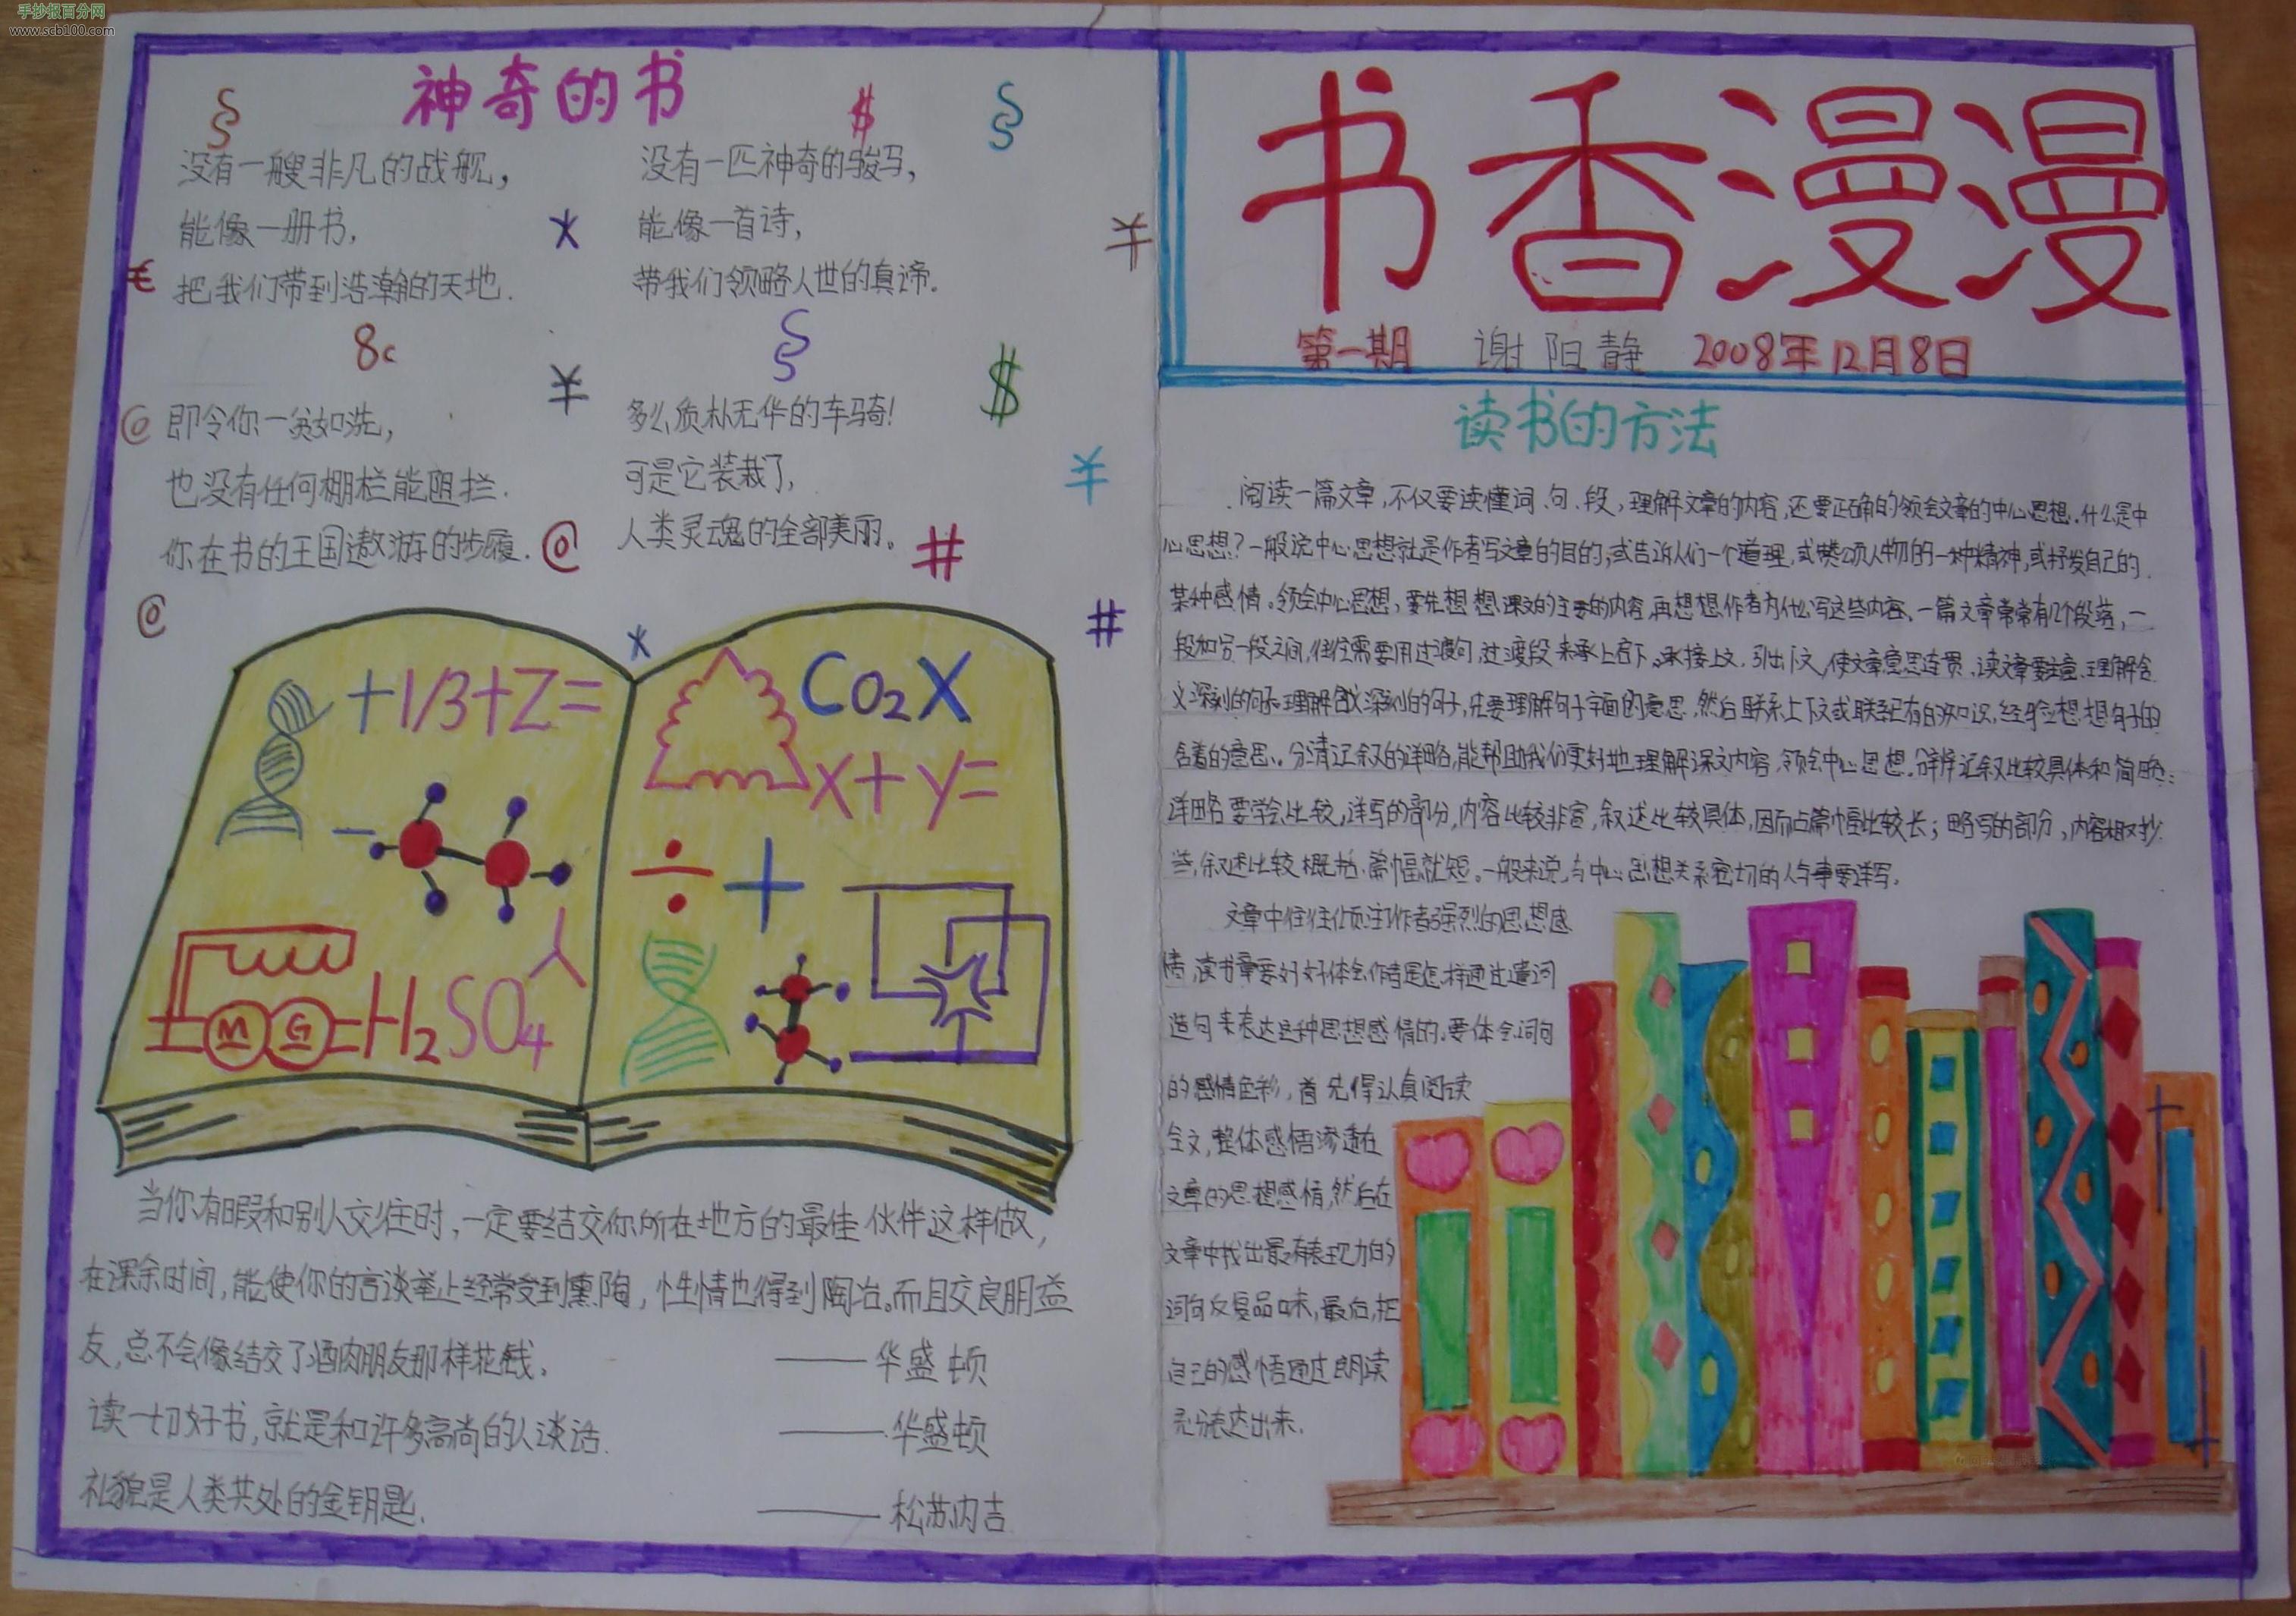 手抄报百分网
www.scb100.com
神奇的书
没有一艘非凡的战舰，
能像一册书，
把我们带到浩瀚的天地.
没有一匹神奇的骏马，
能像一首诗，
带我们领略人世的真谛。
即令你一贫如洗，
也没有任何栅栏能阻拦.
你在书的王国遨游的步履.
多么质朴无华的车骑！
可是它装载了，
人类灵魂的全部美丽。
+1/3+Z=
Co2X
X+y=
÷ +
M G H2SO4
当你有暇和别人交往时，一定要结交你所在地方的最佳伙伴这样做，
在课余时间，能使你的言谈举止经常受到熏陶，性情也得到陶冶。而且交良朋益
友，总不会像结交了酒肉朋友那样花钱。
——华盛顿
读一切好书，就是和许多高尚的人谈话.
——华盛顿
礼貌是人类共处的金钥匙.
——松苏内吉
书香漫漫
第一期 谢阳静 2008年12月8日
读书的方法
阅读一篇文章，不仅要读懂词、句、段，理解文章的内容，还要正确的领会文章的中心思想.什么是中
心思想？一般说中心思想就是作者写文章的目的；或告诉人们一个道理，或赞颂人物的一种精神，或抒发自己的
某种感情。领会中心思想，要先想想课文的主要的内容，再想想作者为什么写这些内容、一篇文章常常有几个段落，一
段和另一段之间，往往需要用过渡句，过渡段来承上启下。承接上文.引出下文，使文章意思连贯.读文章要注意.理解含
义深刻的句子.理解含义深刻的句子，先要理解句子字面的意思.然后联系上下文或联系已有的知识，经验想想句子的
含着的意思。分清记叙的详略，能帮助我们更好地理解课文内容.领会中心思想.详略记叙比较具体和简略：
详略要学会比较，详写的部分，内容比较非富，叙述比较具体，因而占篇幅比较长；略写的部分，内容相对抄
些，叙述比较概括.篇幅就短。一般来说，与中心思想关系密切的人与事要详写.
文章中往往倾注作者强烈的思想感
情，读书章要好好体会作者是怎样通过遣词
造句来表达这种思想感情的.要体会词句
的感情色彩，首先得认真阅读
全文，整体感悟渗透在
文章的思想感情，然后在
文章中找出最有表现力的
词句反复品味，最后，把
自己的感悟通过朗读
充分表达出来.